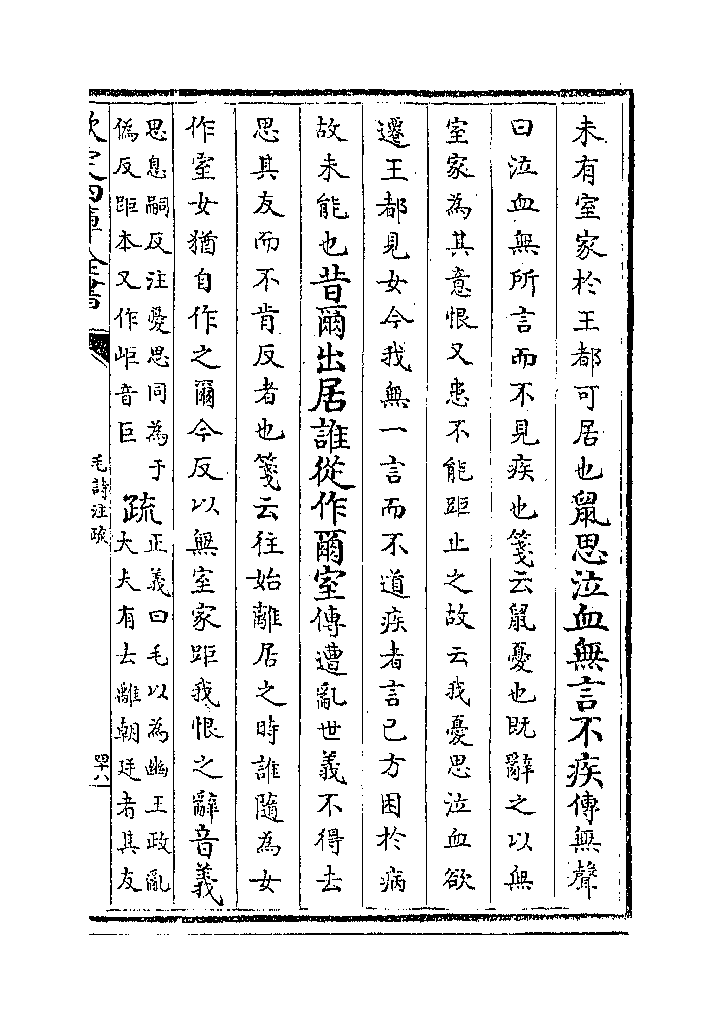 未有室家於王都可居也鼠思泣血無言不疾傳無聲
曰泣血無所言而不見疾也箋云鼠憂也既辭之以無
室家為其意恨又患不能距止之故云我憂思泣血欲
遷王都見女今我無一言而不道疾者言己方困於病
故未能也昔爾出居誰從作爾室傳遭亂世義不得去
思其友而不肯反者也箋云往始離居之時誰隨為女
作室女猶自作之爾今反以無室家距我恨之辭音義
思息嗣反注憂思同為于
偽反距本又作岠音巨
疏
正義曰毛以為幽王政亂
大夫有去離朝廷者其友
欽定四庫全書
毛詩注疏
四十八